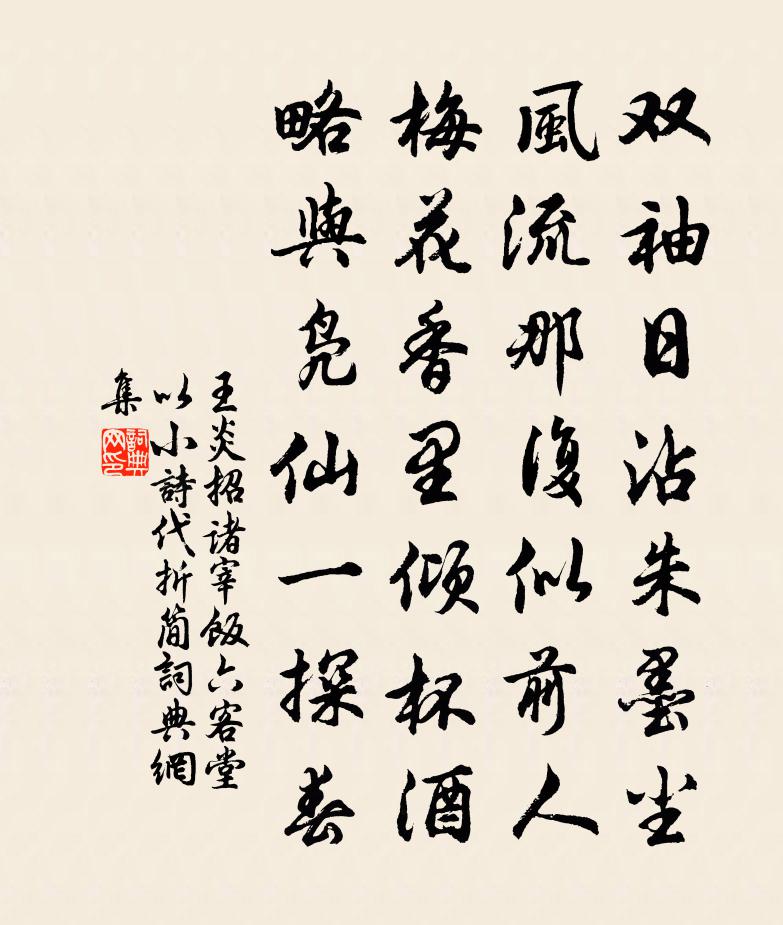 双袖日沾朱墨尘
風流那復似前人
梅花香里傾杯酒
略與凫仙一探春
王炎招诸宰飯六客堂
以小詩代折简詞典網
集
詞典网印